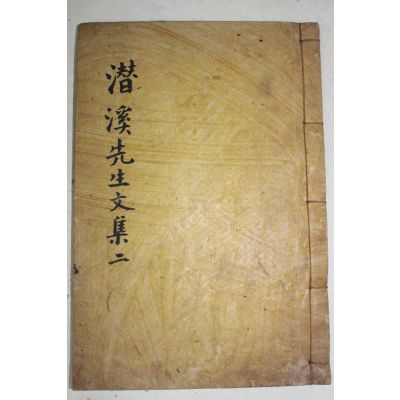 潛溪先生文集二